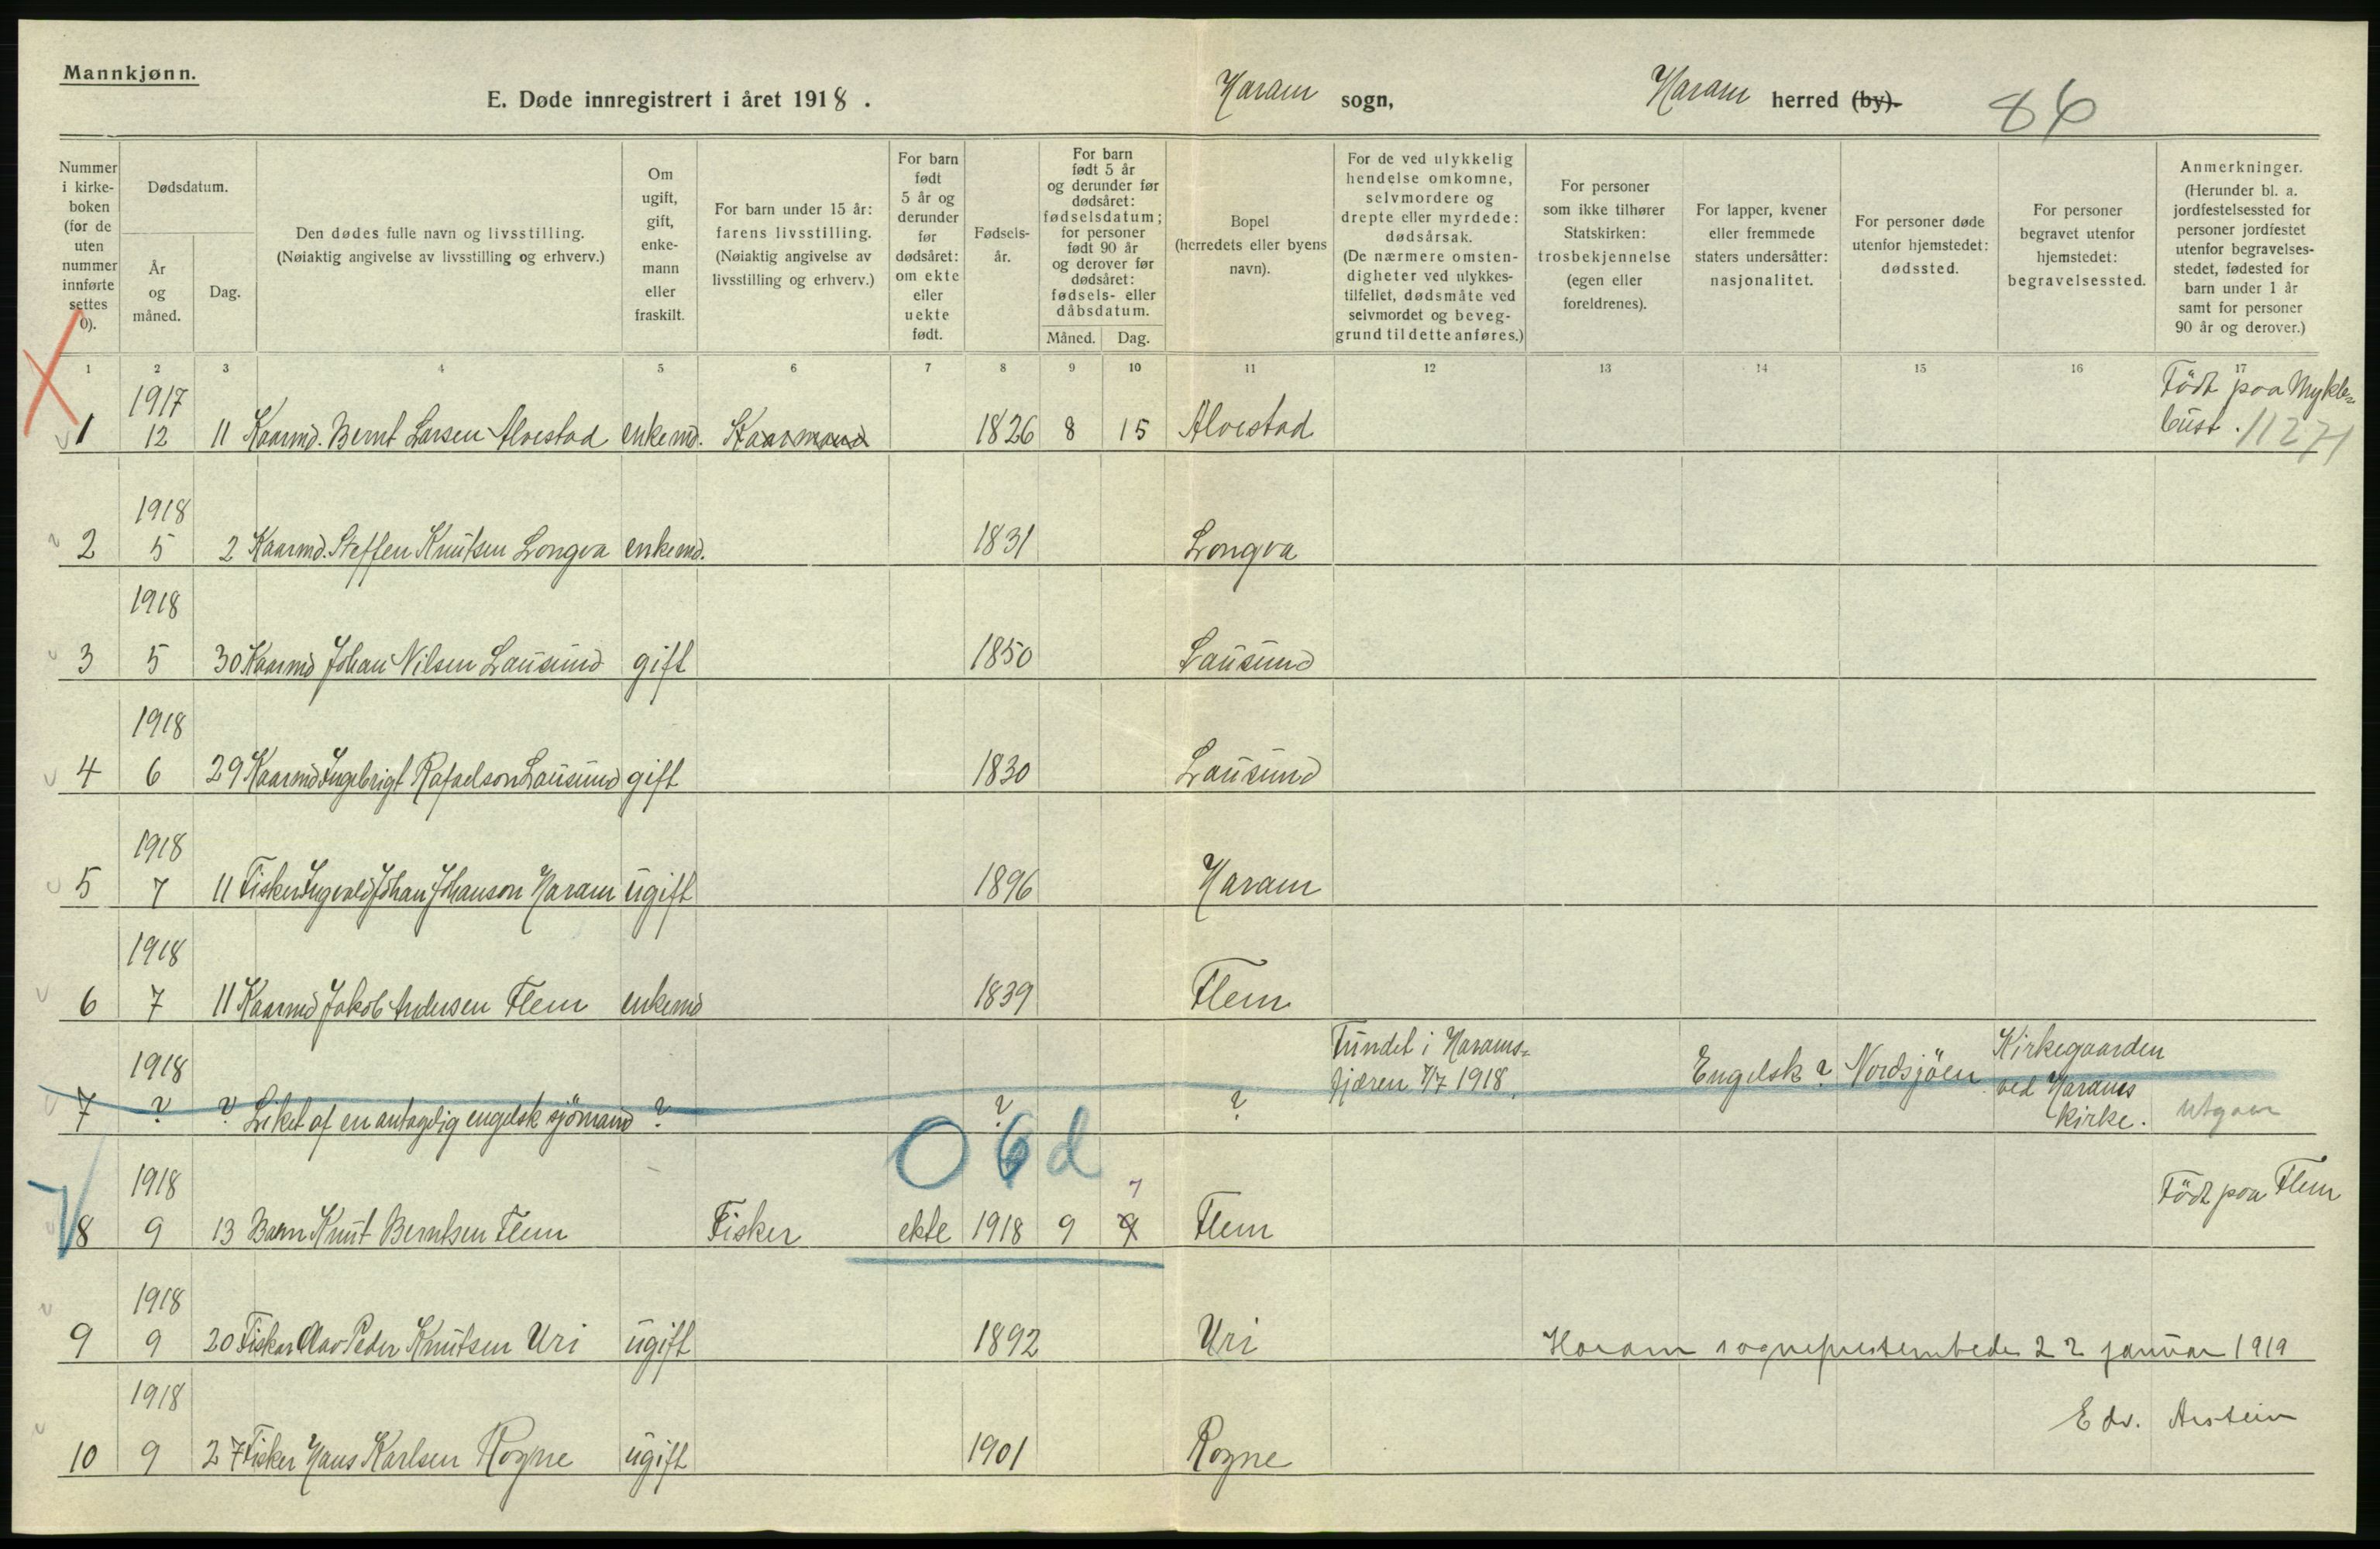 Mannkjønn.
E. Døde innregistrert i året 1918. Haram sogn, Haram herred (by).
86
Nummer i kirke- boken (for de uten nummer innførte settes 0).
Dødsdatum.
År og måned.
Dag.
Den dødes fulle navn og livsstilling. (Nøiaktig angivelse av livsstilling og erhverv.)
Om ugift, gift, enke- mann eller fraskilt.
For barn under 15 år: farens livsstilling. (Nøiaktig angivelse av livsstilling og erhverv.)
For barn født 5 år og derunder før dødsåret: om ekte eller uekte født.
Fødsels- år.
For barn født 5 år og derunder før dødsåret: fødselsdatum; for personer født 90 år og derover før dødsåret: fødsels- eller dåbsdatum.
Måned. Dag.
Bopel (herredets eller byens navn).
For de ved ulykkelig hendelse omkomne, selvmordere og drepte eller myrdede: dødsårsak. (De nærmere omsten- digheter ved ulykkes- tilfellet, dødsmåte ved selvmordet og beveg- grund til dette anføres.)
For personer som ikke tilhører Statskirken: trosbekjennelse (egen eller foreldrenes).
For lapper, kvener eller fremmede staters undersåtter: nasjonalitet.
For personer døde utenfor hjemstedet: dødssted.
For personer begravet utenfor hjemstedet: begravelsessted.
Anmerkninger. (Herunder bl. a. jordfestelsessted for personer jordfestet utenfor begravelses- stedet, fødested for barn under 1 år samt for personer 90 år og derover.)
1 2 3 4 5 6 7 8 9 10 11 12 13 14 15 16 17
1917 Födt paa Mykle=
1 12 11 Kaarmd. Bernt Larsen Alvestad enkemd. Kaarmand 1826 8 15 Alvestad bust. 11271
1918
2 5 2 Kaarmd. Steffen Knutsen Longva enkemd. 1831 Longva
1918
3 5 30 Kaarmd Johan Nilsen Lausund gift 1850 Lausund
1918
4 6 29 Kaarmd Ingebrigt Rafaelson Lausund gift 1830 Lausund
1918
5 7 11 Fisker Ingvald Johan Johanson Haram ugift 1896 Haram
1918
6 7 11 Kaarmd Jakob Andersen Flem enkemd 1839 Flem
1918 Fundet i Harams= fjæren 7/7 1918. Engelsk? Nordsjöen Kirkegaarden ved Harams Kirke.
7 ? ? Liket af en antagelig engelsk sjömand ? ? ? Utgaar
0 6 d
1918 7 Födt paa Flem
8 9 13 Barn Knut Berntsen Flem Fisker ekte 1918 9 9 Flem
1918
9 9 20 Fisker Olav Peder Knutsen Uri ugift 1892 Uri Haram sogneprestembede 22 januar 1919
1918 Edv. Aastein
10 9 27 Fisker Hans Karlsen Rogne ugift 1901 Rogne